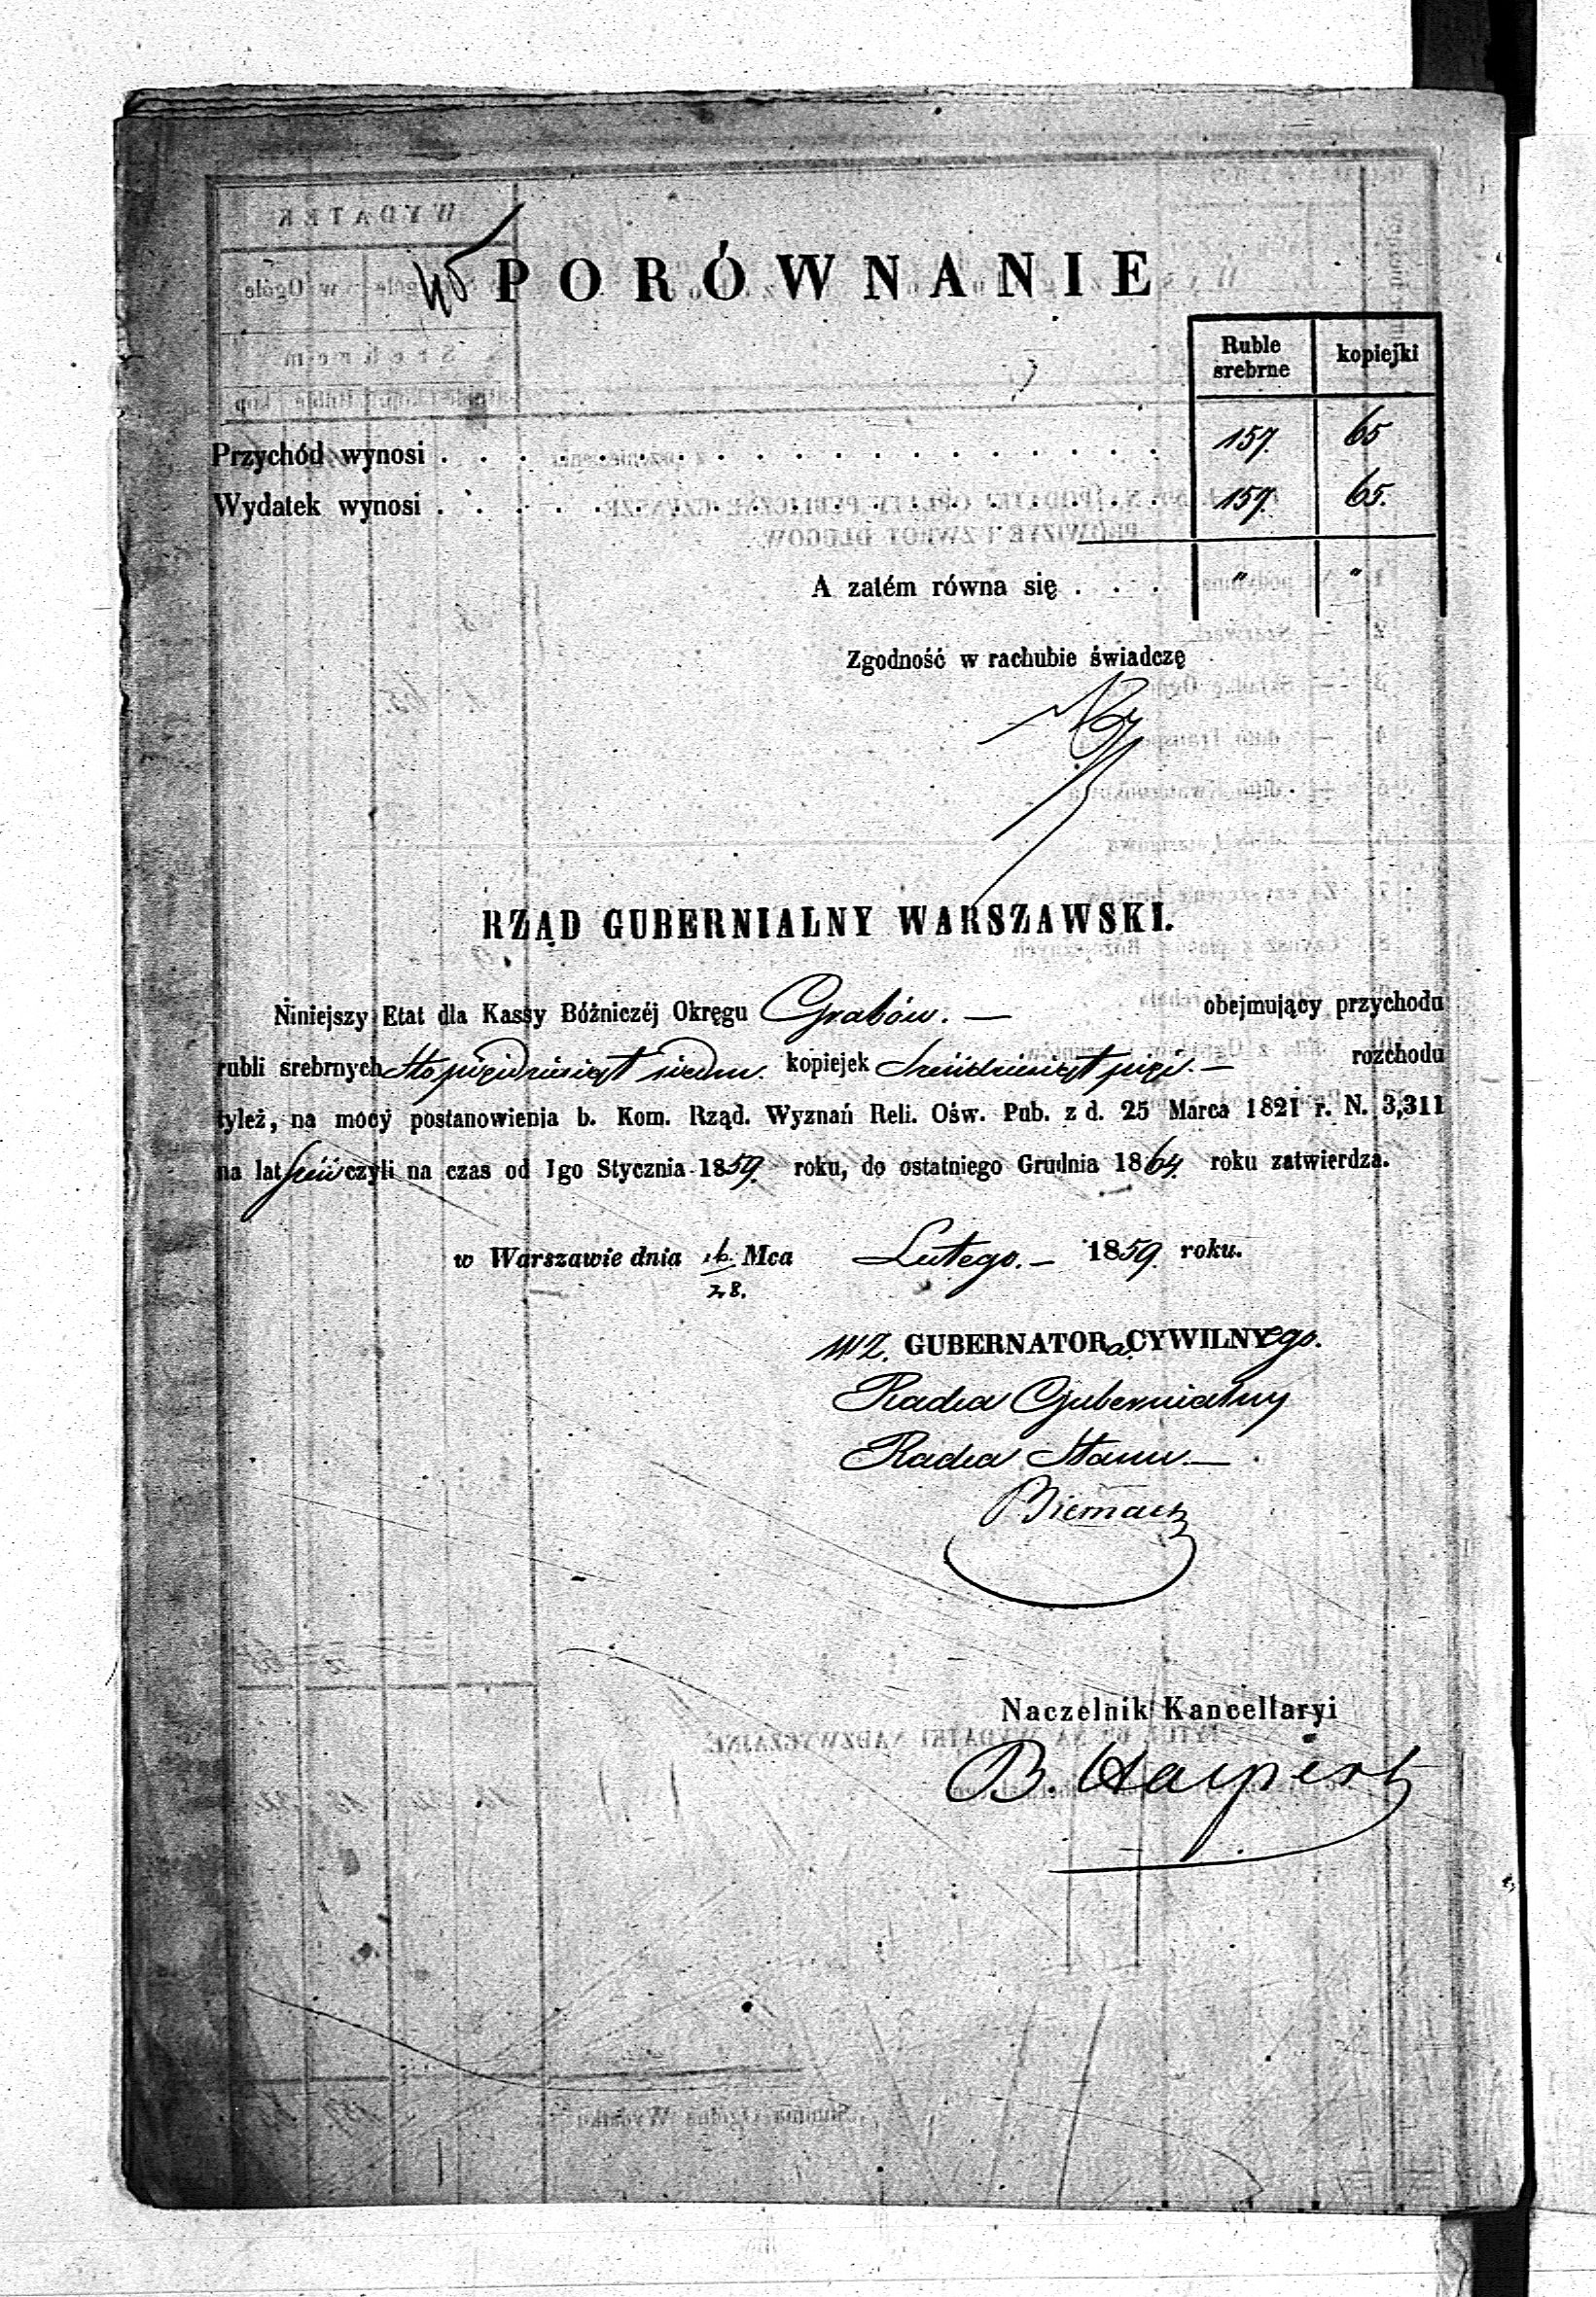 PORÓWNANIE
Ruble srebrne kopiejki
Przychód wynosi . . . . . . . . . . . . . . . . . . . 157. 65
Wydatek wynosi . . . . . . . . . . . . . . . . . . . 157. 65.
A zatém równa się . . . " "
Zgodność w rachubie świadczę
RZĄD GUBERNIALNY WARSZAWSKI.
Niniejszy Etat dla Kassy Bóżniczéj Okręgu Grabów. — obejmujący przychodu
rubli srebrnych sto pięćdziesiąt siedm. kopiejek sześćdziesiąt pięć. — rozchodu
tyleż, na mocy postanowienia b. Kom. Rząd. Wyznań Reli. Ośw. Pub. z d. 25 Marca 1821 r. N. 3,311
na lat sześć czyli na czas od 1go Stycznia 1859. roku, do ostatniego Grudnia 1864. roku zatwierdza.
w Warszawie dnia 16/28. Mca Lutego. — 1859. roku.
WZ. GUBERNATORa CYWILNYego.
Radca Gubernialny
Radca Stanu. —
Naczelnik Kancellaryi
B. Halpert